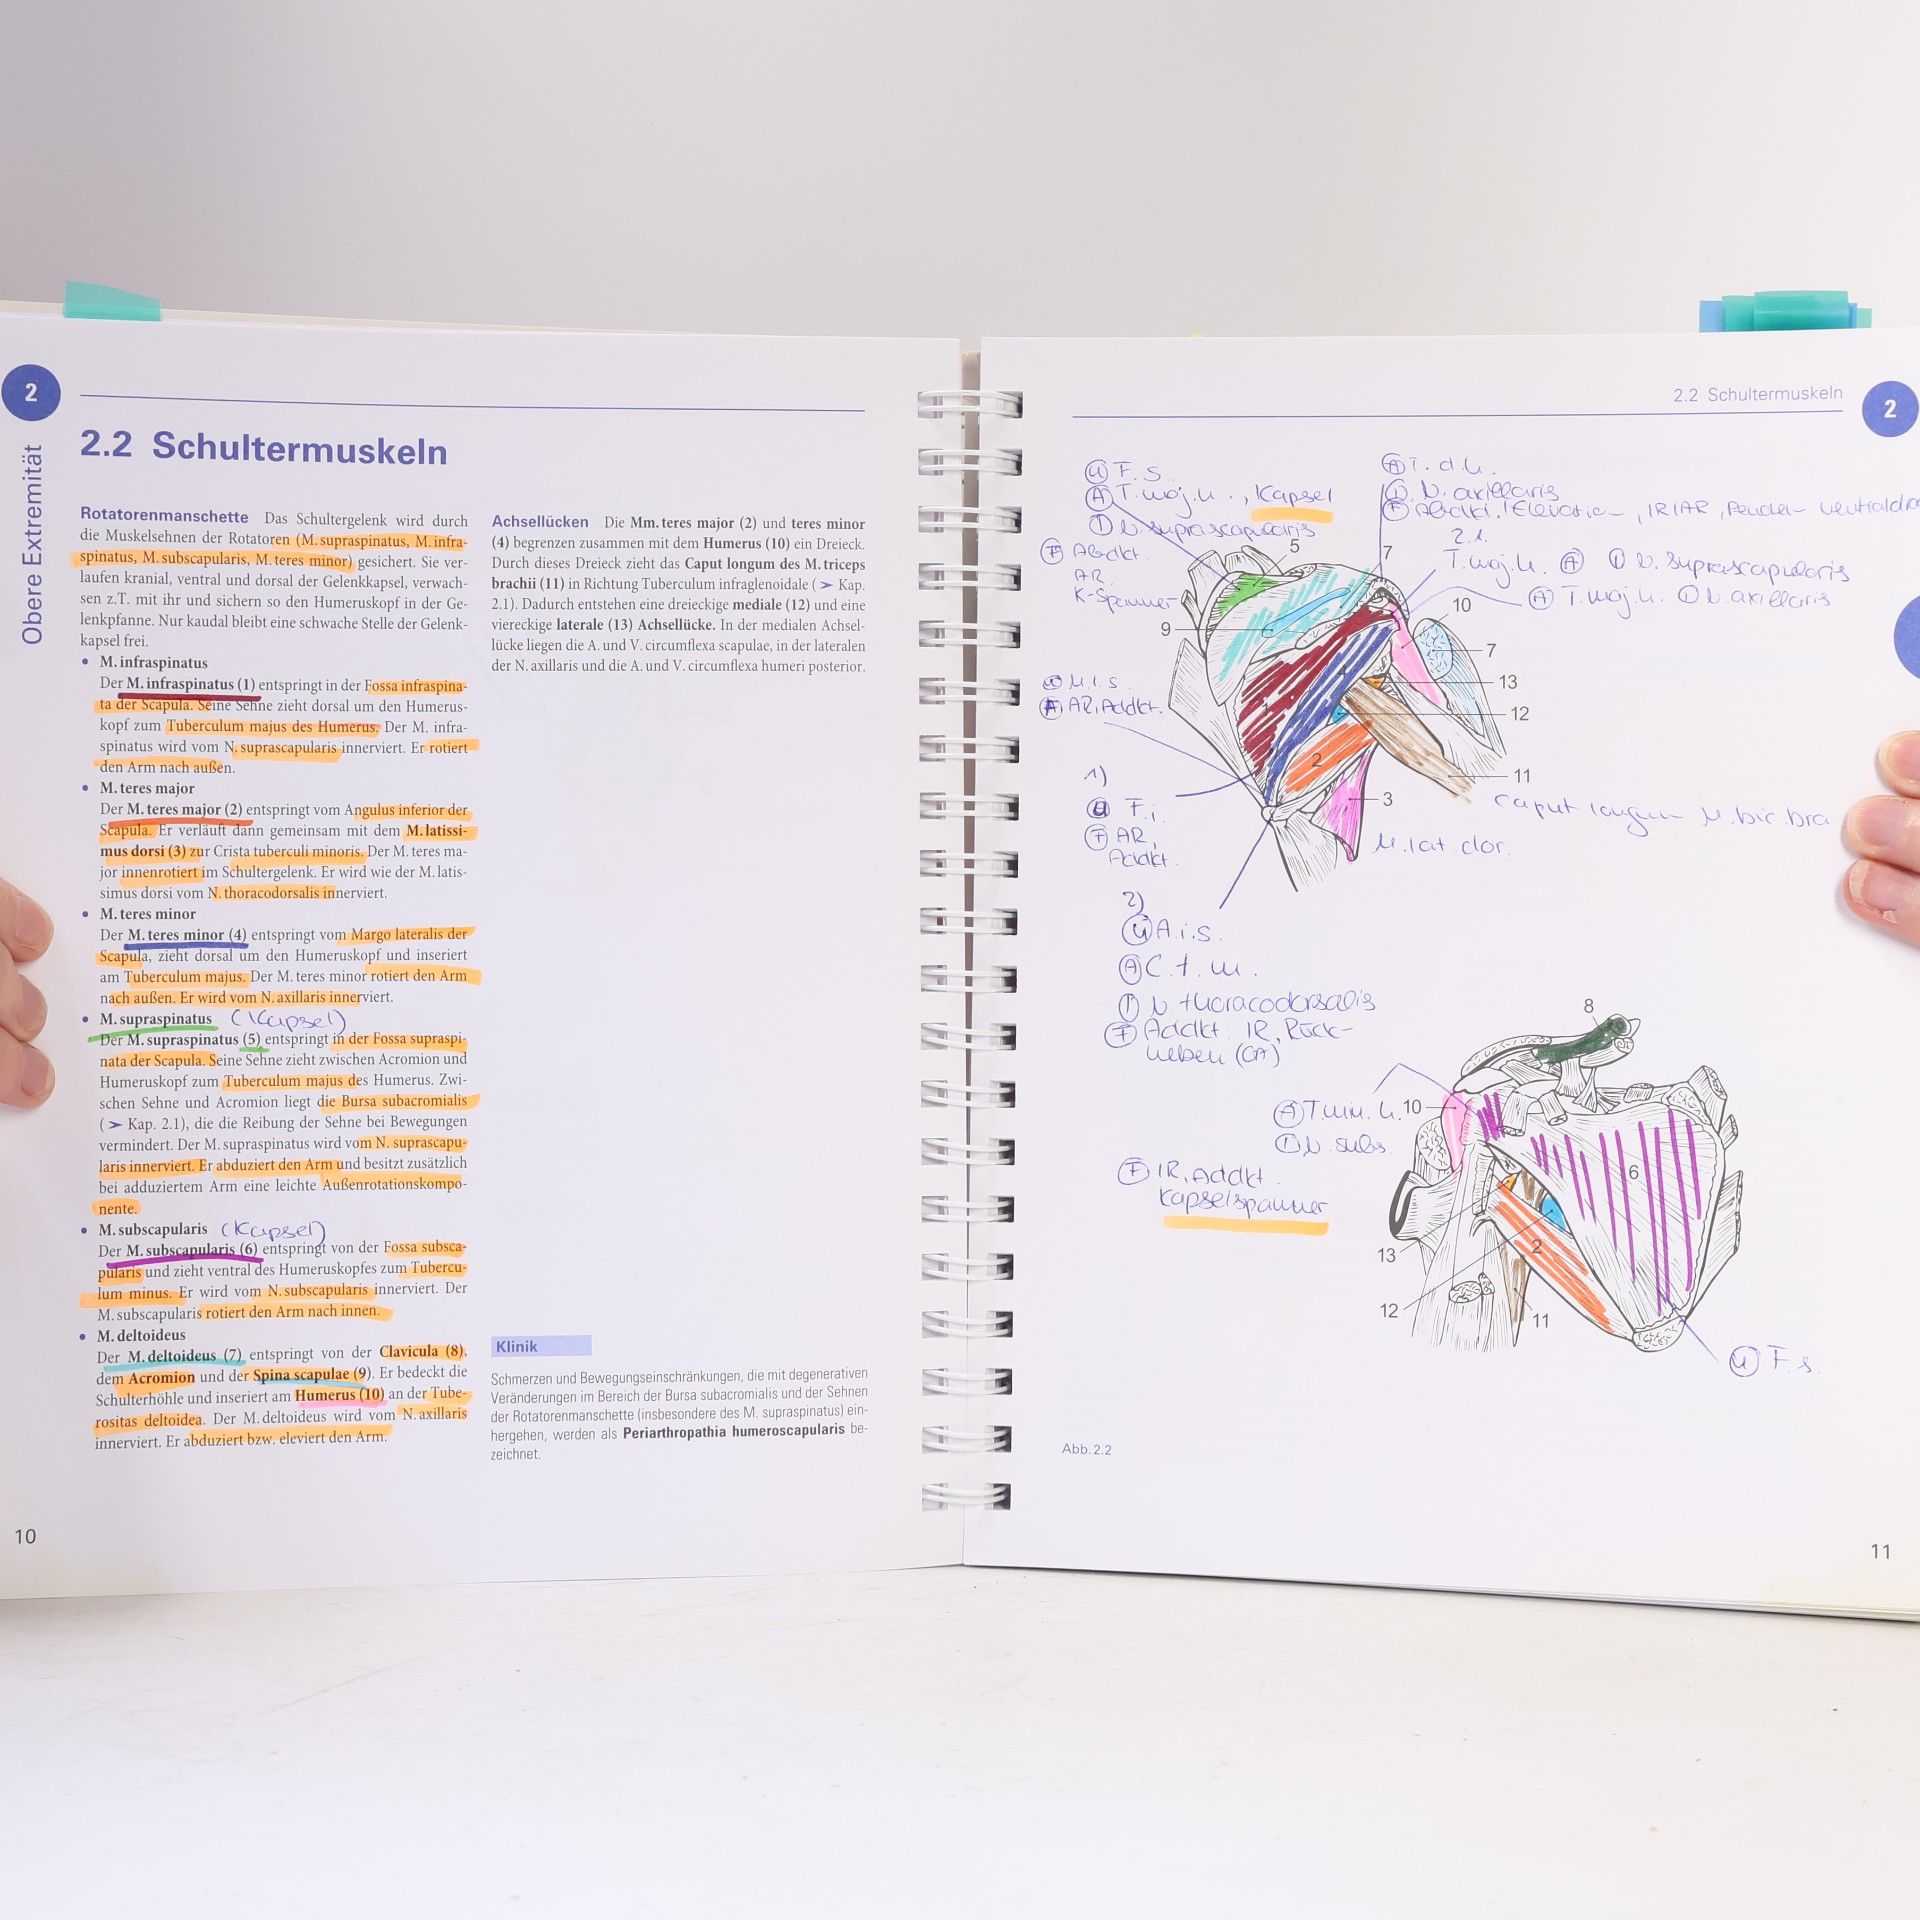 2
Obere Extremität
2.2 Schultermuskeln
Rotatorenmanschette Das Schultergelenk wird durch
die Muskelsehnen der Rotatoren (M. supraspinatus, M. infra-
spinatus, M. subscapularis, M. teres minor) gesichert. Sie ver-
laufen kranial, ventral und dorsal der Gelenkkapsel, verwach-
sen z.T. mit ihr und sichern so den Humeruskopf in der Ge-
lenkpfanne. Nur kaudal bleibt eine schwache Stelle der Gelenk-
kapsel frei.
• M. infraspinatus
Der M. infraspinatus (1) entspringt in der Fossa infraspina-
ta der Scapula. Seine Sehne zieht dorsal um den Humerus-
kopf zum Tuberculum majus des Humerus. Der M. infra-
spinatus wird vom N. suprascapularis innerviert. Er rotiert
den Arm nach außen.
• M. teres major
Der M. teres major (2) entspringt vom Angulus inferior der
Scapula. Er verläuft dann gemeinsam mit dem M. latissi-
mus dorsi (3) zur Crista tuberculi minoris. Der M. teres ma-
jor innenrotiert im Schultergelenk. Er wird wie der M. latis-
simus dorsi vom N. thoracodorsalis innerviert.
• M. teres minor
Der M. teres minor (4) entspringt vom Margo lateralis der
Scapula, zieht dorsal um den Humeruskopf und inseriert
am Tuberculum majus. Der M. teres minor rotiert den Arm
nach außen. Er wird vom N. axillaris innerviert.
• M. supraspinatus (Kapsel)
Der M. supraspinatus (5) entspringt in der Fossa supraspi-
nata der Scapula. Seine Sehne zieht zwischen Acromion und
Humeruskopf zum Tuberculum majus des Humerus. Zwi-
schen Sehne und Acromion liegt die Bursa subacromialis
(> Kap. 2.1), die die Reibung der Sehne bei Bewegungen
vermindert. Der M. supraspinatus wird vom N. suprascapu-
laris innerviert. Er abduziert den Arm und besitzt zusätzlich
bei adduziertem Arm eine leichte Außenrotationskompo-
nente.
• M. subscapularis (Kapsel)
Der M. subscapularis (6) entspringt von der Fossa subsca-
pularis und zieht ventral des Humeruskopfes zum Tubercu-
lum minus. Er wird vom N. subscapularis innerviert. Der
M. subscapularis rotiert den Arm nach innen.
• M. deltoideus
Der M. deltoideus (7) entspringt von der Clavicula (8),
dem Acromion und der Spina scapulae (9). Er bedeckt die
Schulterhöhle und inseriert am Humerus (10) an der Tube-
rositas deltoidea. Der M. deltoideus wird vom N. axillaris
innerviert. Er abduziert bzw. eleviert den Arm.
Achsellücken Die Mm. teres major (2) und teres minor
(4) begrenzen zusammen mit dem Humerus (10) ein Dreieck.
Durch dieses Dreieck zieht das Caput longum des M. triceps
brachii (11) in Richtung Tuberculum infraglenoidale (> Kap.
2.1). Dadurch entstehen eine dreieckige mediale (12) und eine
viereckige laterale (13) Achsellücke. In der medialen Achsel-
lücke liegen die A. und V. circumflexa scapulae, in der lateralen
der N. axillaris und die A. und V. circumflexa humeri posterior.
Klinik
Schmerzen und Bewegungseinschränkungen, die mit degenerativen
Veränderungen im Bereich der Bursa subacromialis und der Sehnen
der Rotatorenmanschette (insbesondere des M. supraspinatus) ein-
hergehen, werden als Periarthropathia humeroscapularis be-
zeichnet.
10
2.2 Schultermuskeln
2
U F. S.
A T. maj. h., Kapsel
I N. suprascapularis
F Abdkt.
AR.
K-Spanner
A T. d. h.
I N. axillaris
F Abdkt. Elevation, IR/AR, Pendel-
T. maj. h. A I N. suprascapularis
A T. maj. h. I N. axillaris
5
7
10
9
7
13
12
1
2
11
3
U M. l. s.
F AR, Addkt.
1)
U F. i.
F AR,
Addkt.
caput longum M. bic. bra
M. lat. dor.
2)
U A. i. s.
A C. t. m.
I N. thoracodorsalis
F Addkt. IR, Rück-
heben
A T. min. h.
I N. subs.
F IR, Addkt.
Kapselspanner
8
10
6
13
2
12
11
U F. s.
Abb. 2.2
11